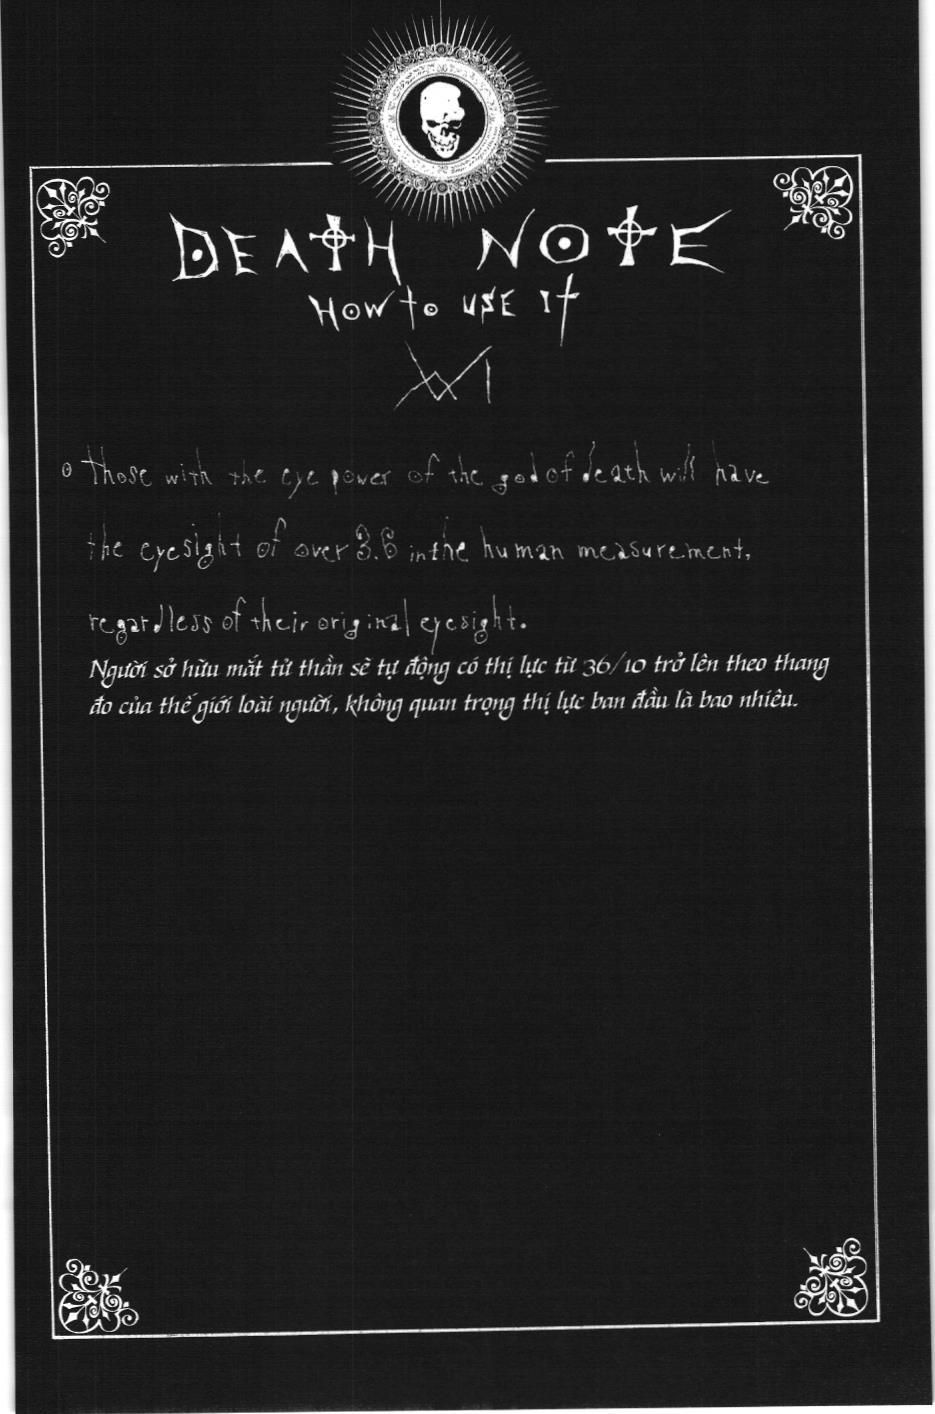 DEATH NOTE
HOW to USE It
XVI
Those with the eye power of the god of death will have
the eyesight of over 3.6 in the human measurement,
regardless of their original eyesight.
Người sở hữu mắt tử thần sẽ tự động có thị lực từ 36/10 trở lên theo thang
đo của thế giới loài người, không quan trọng thị lực ban đầu là bao nhiêu.